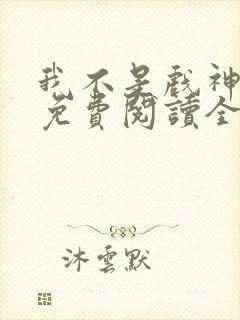 我不是戲神
免費閱讀全
沐雲默